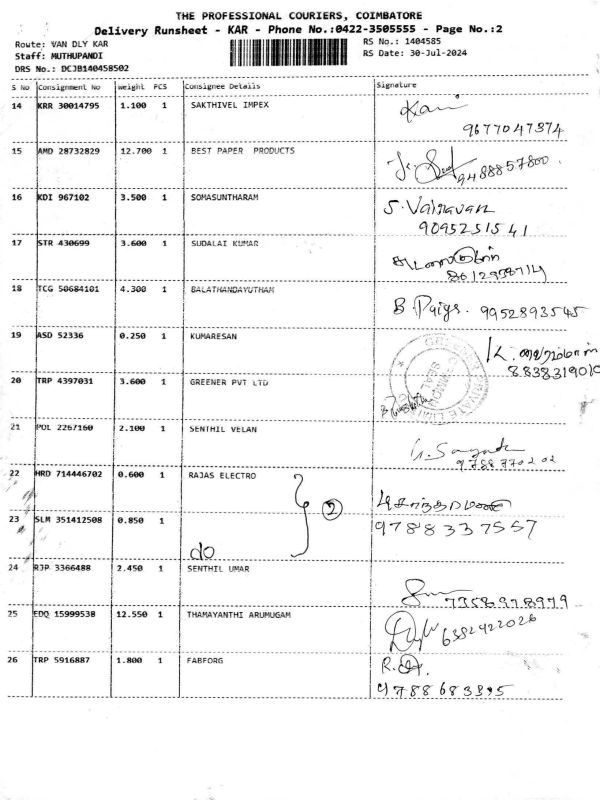 THE PROFESSIONAL COURIERS, COIMBATORE
Delivery Runsheet - KAR - Phone No.:0422-3505555 - Page No.:2
Route: VAN DLY KAR
RS No.: 1404585
Staff: MUTHUPANDI
RS Date: 30-Jul-2024
DRS No.: DCJB140458502
S No Consignment No weight PCS Consignee Details Signature
14 KRR 30014795 1.100 1 SAKTHIVEL IMPEX
9677047374
15 AMD 28732829 12.700 1 BEST PAPER PRODUCTS
9488857800
16 KDI 967102 3.500 1 SOMASUNTHARAM S. Vairavan
9095251541
17 STR 430699 3.600 1 SUDALAI KUMAR
18 TCG 50684101 4.300 1 BALATHANDAYUTHAM
9952893545
19 ASD 52336 0.250 1 KUMARESAN
8838319010
20 TRP 4397031 3.600 1 GREENER PVT LTD
21 POL 2267160 2.100 1 SENTHIL VELAN
9788770202
22 HRD 714446702 0.600 1 RAJAS ELECTRO
2
23 SLM 351412508 0.850 1 do
9788337557
24 RJP 3366488 2.450 1 SENTHIL UMAR
7358978979
25 EDQ 15999538 12.550 1 THAMAYANTHI ARUMUGAM
6382422026
26 TRP 5916887 1.800 1 FABFORG